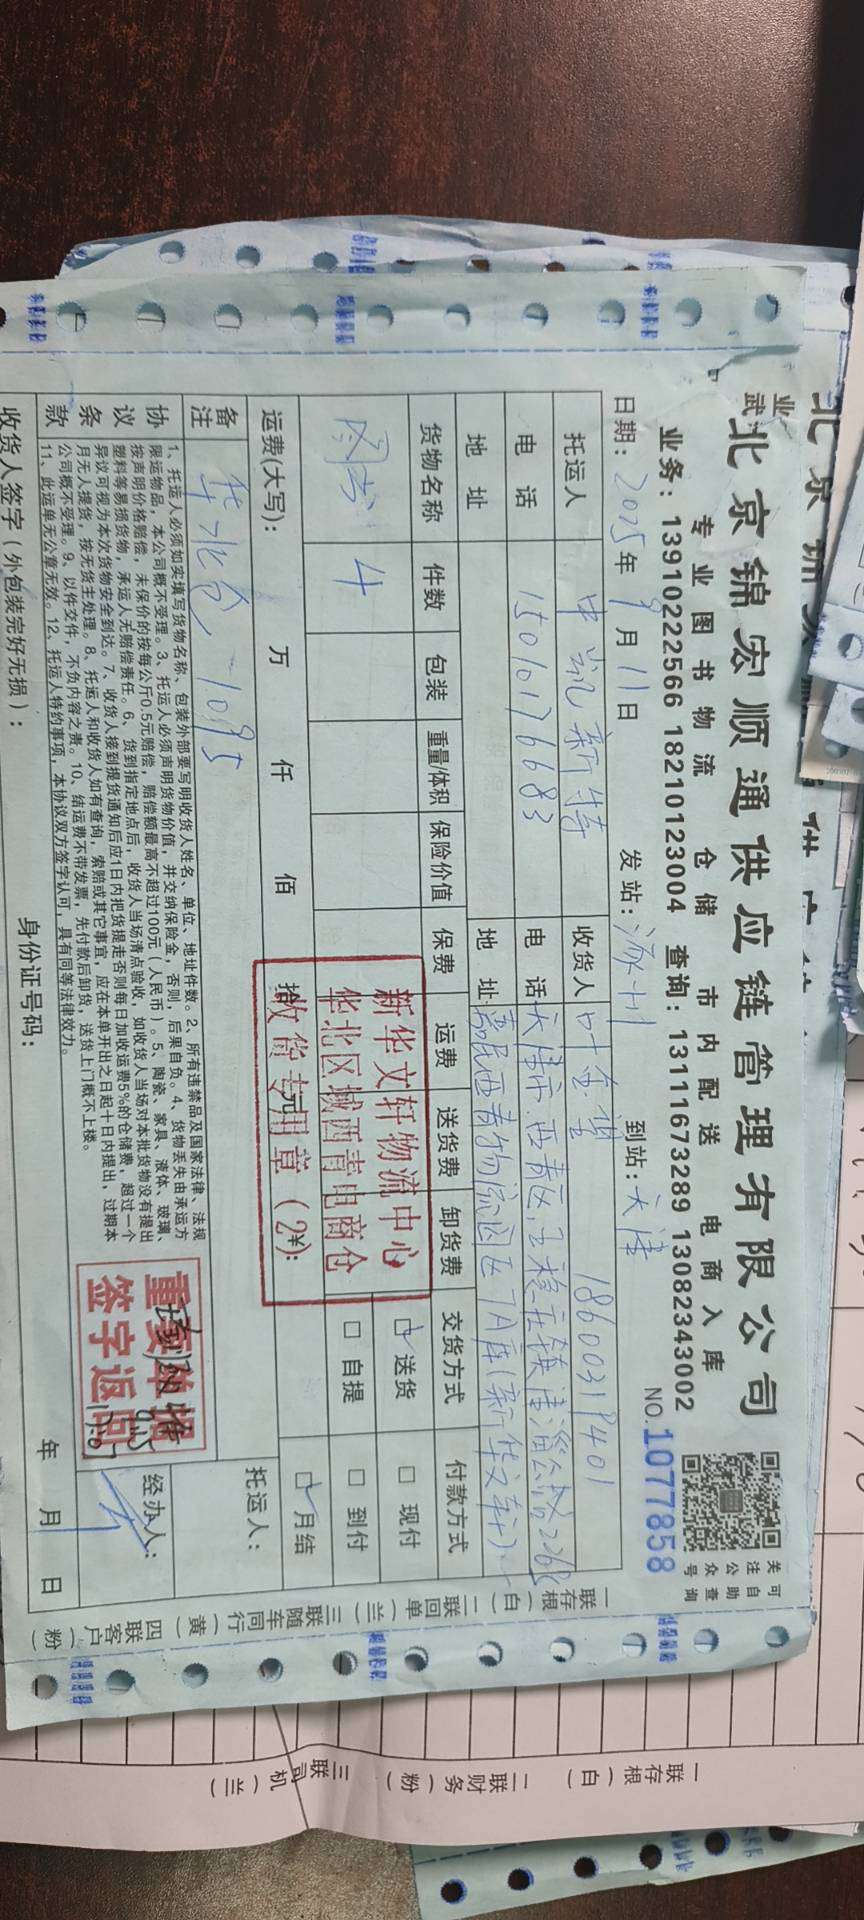 北京锦宏顺通供应链管理有限公司
专业图书物流 仓储 市内配送 电商入库
业务：13910222566 18210123004 查询：13111673289 13082343002
关注公众号
可自助查询
日期：2025年9月11日 发站：涿州 到站：天津 NO.1077858
托运人 中凯新特 收货人 18600319401
电话 15010176683 电话
地址 地址
天津市西青区王稳庄镇津淄公路226号
嘉民西青物流园区7A库(新华文轩)
货物名称 件数 包装 重量/体积 保险价值 保费 运费 送货费 卸货费 交货方式 付款方式
图书 4 送货 现付
自提 到付
月结
运费(大写)： 万 仟 佰 拾 元 (¥)：
新华文轩物流中心
华北区域西青电商仓
收货专用章（2）
备注 华北仓-1095
托运人：
协议条款
1、托运人必须如实填写货物名称、包装外部要写明收货人姓名、单位、地址件数。2、所有违禁品及国家法律、法规
限运物品，本公司概不受理。3、托运人必须声明货物价值，并交纳保险金，否则，后果自负。4、货物丢失由承运方
按声明价格赔偿，未保价的按每公斤0.5元赔偿，赔偿额最高不超过100元（人民币）。5、陶瓷、家具、液体、玻璃、
塑料等易损货物，承运人无赔偿责任。6、货到指定地点后，收货人当场清点验收，如收货人当场对本批货物没有提出
异议可视为本次货物安全到达。7、收货人接到提货通知后应1日内把货提走否则每日加收运费5%的仓储费，超过一个
月无人提货，按无货主处理。8、托运人和收货人如有查询，索赔或其它事宜，应在本单开出之日起十日内提出，过期本
公司概不受理。9、以件交件，不负内容之责。10、结运费不带发票，先付款后卸货，送货上门概不上楼。
11、此运单无公章无效。12、托运人特约事项，本协议双方签字认可，具有同等法律效力。
重要单据
签字返回
经办人：
收货人签字（外包装完好无损）： 身份证号码： 年 月 日
一联存根（白） 二联回单（兰） 三联随车同行（黄） 四联客户（粉）
一联存根（白） 二联财务（粉） 三联司机（兰）